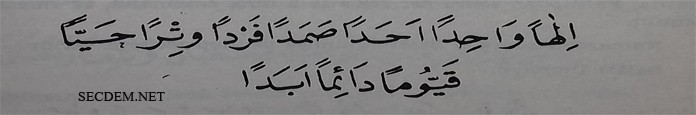 اِلٰهاً وَاحِدًا اَحَدًا صَمَدًا فَرْدًا وِتْرًا حَيًّا
قَيُّومًا دَائِمًا اَبَدًا
SECDEM.NET